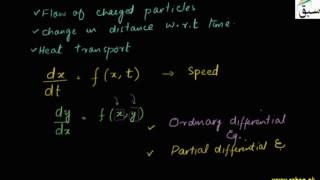 ✓ Flow of charged particles
✓ change in distance w.r.t time.
✓ Heat transport
dx/dt = f(x,t) → Speed
dy/dx = f(x,y)
✓ Ordinary differential Eq.
✓ Partial differential E
سبق